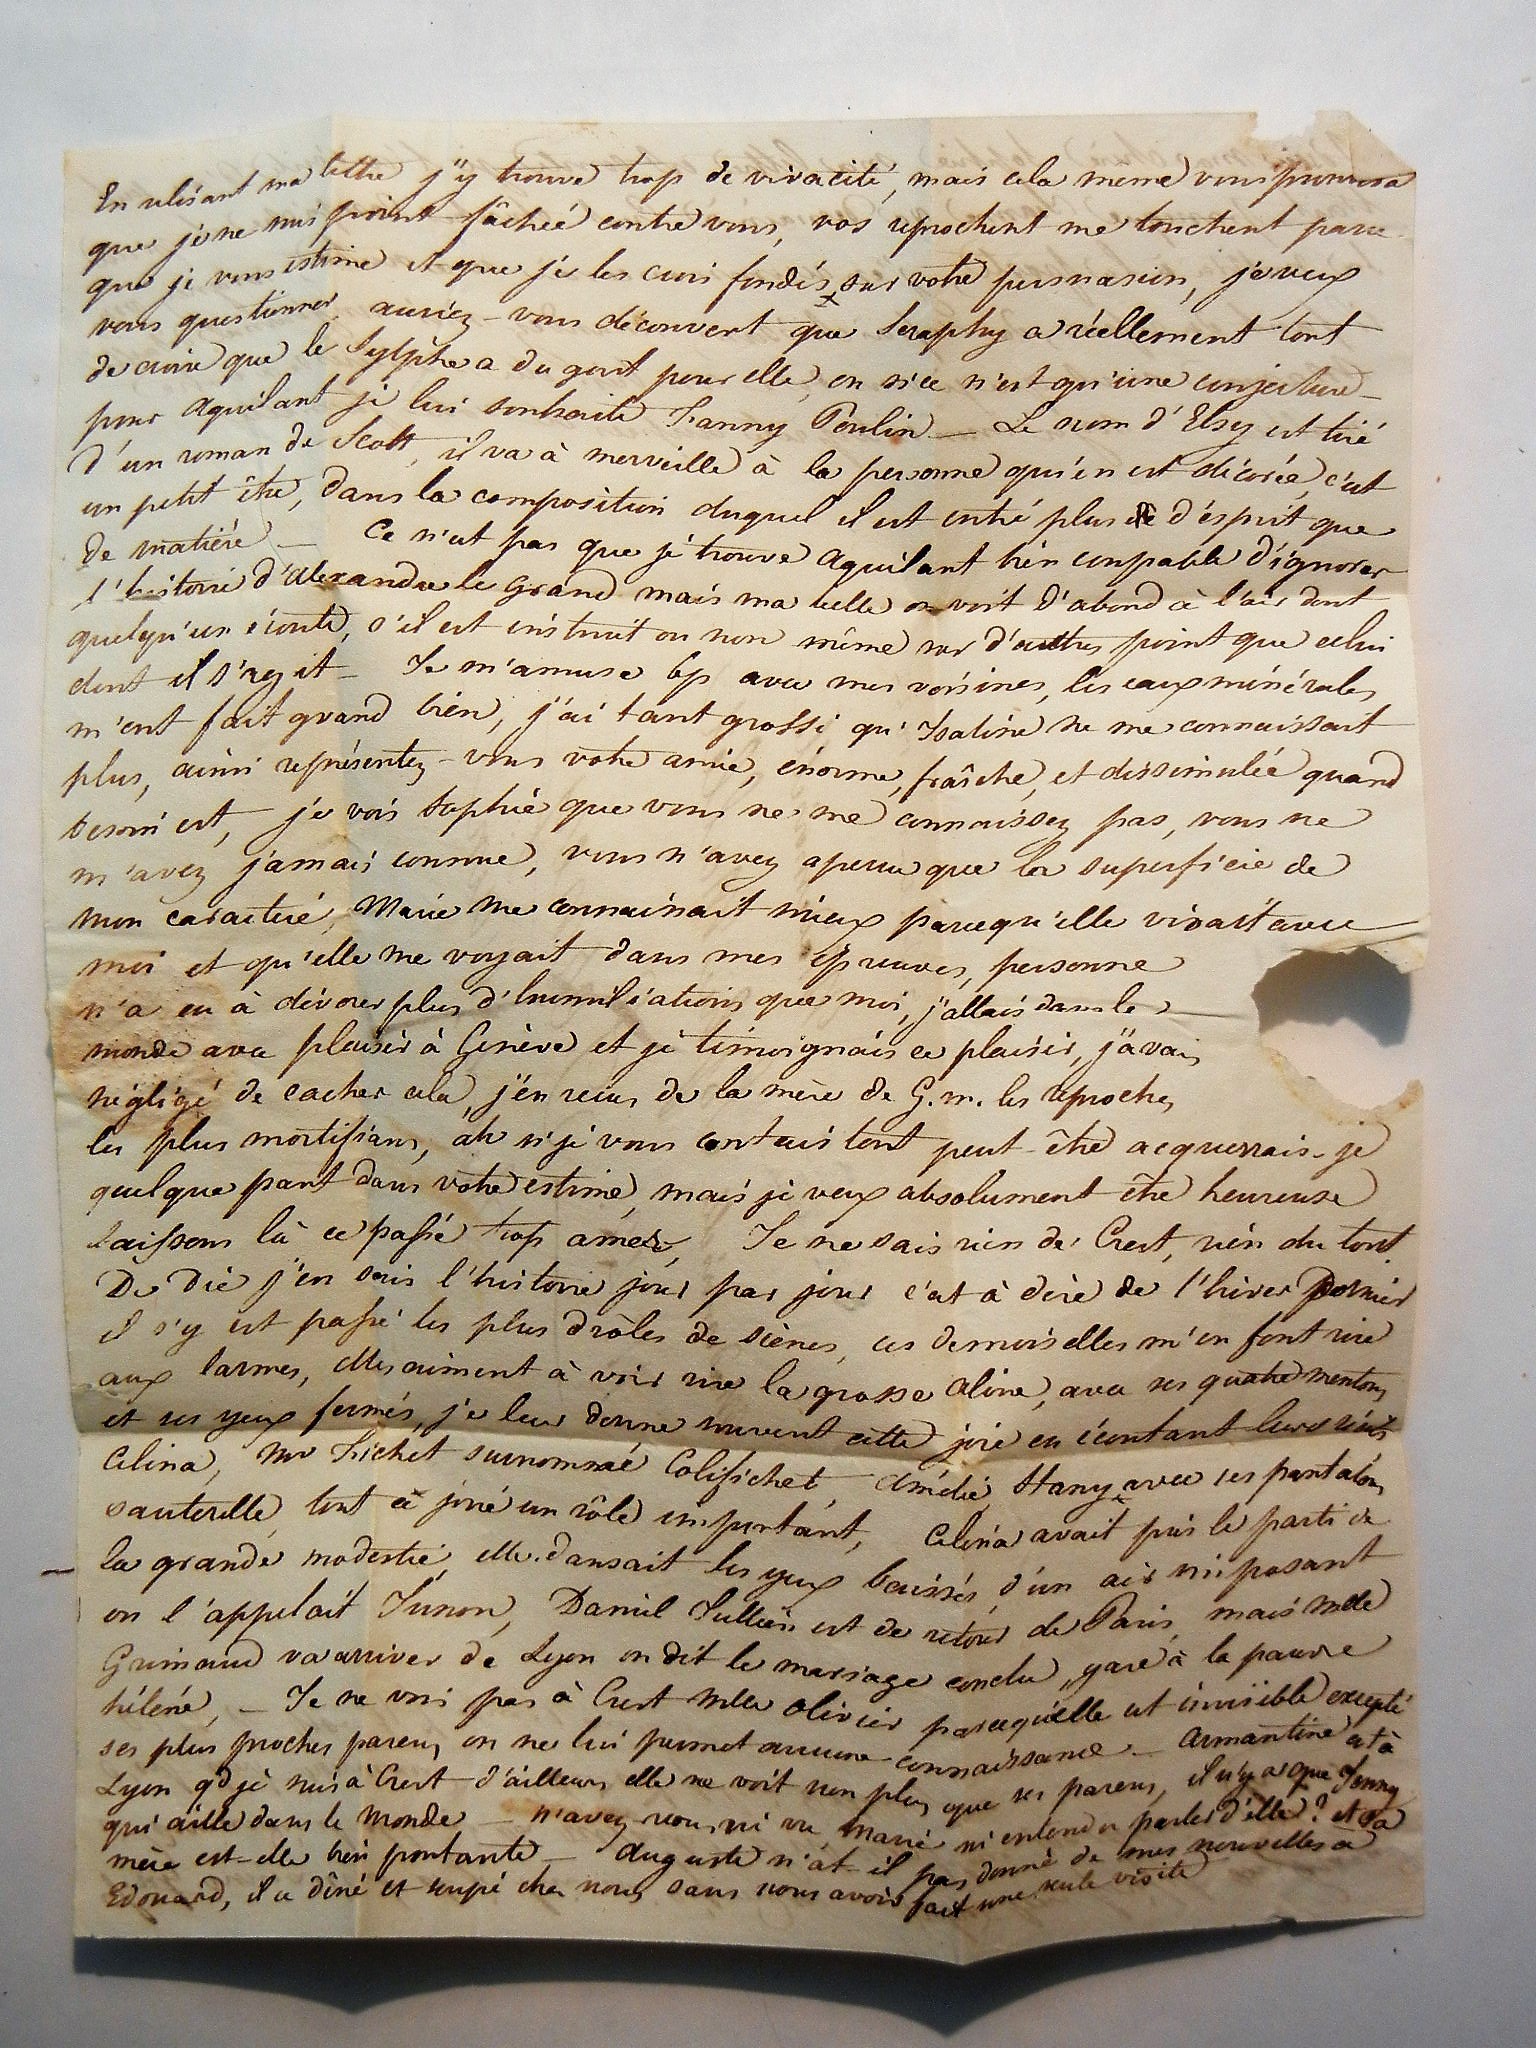 En relisant ma lettre j'y trouve trop de vivacité, mais cela même vous prouvera
que je ne suis point fâchée contre vous, vos reprochent me touchent parce
que je vous estime et que je les crois fondés sur votre persuasion, je veux
vous questionner, auriez-vous découvert que Seraphy a réellement tort
de croire que le Sylphe a du gout pour elle, ou si ce n'est qu'une conjecture —
pour Aquilant je lui souhaite Fanny Poulin — Le nom d'Elsy est tiré
d'un roman de Scott, il va à merveille à la personne qui en est décorée, c'est
un petit être, dans la composition duquel il est entré plus de d'esprit que
de matière — Ce n'est pas que je trouve Aquilant bien coupable d'ignorer
l'histoire d'Alexandre le Grand mais ma belle on voit d'abord à l'air dont
quelqu'un écoute, s'il est instruit ou non même sur d'autres point que celui
dont il s'agit — Je m'amuse bp avec mes voisines, les eaux minérales
m'ont fait grand bien, j'ai tant grossi qu'Isaline ne me connaissait
plus, ainsi représentez-vous votre amie, énorme, fraîche, et dissimulée quand
besoin est, je vois Sophie que vous ne me connaissez pas, vous ne
m'avez jamais connue, vous n'avez aperçu que la superficie de
mon caractère, Marie me connaissait mieux parcequ'elle vivait avec
moi et qu'elle me voyait dans mes épreuves, personne
n'a eu à dévorer plus d'humiliations que moi, j'allais dans le
monde avec plaisir à Genève et je témoignais ce plaisir, j'avais
négligé de cacher cela, j'en reçus de la mère de G. m. les reproches
les plus mortifians, ah si je vous contais tout peut-être acquerrais-je
quelque part dans votre estime, mais je veux absolument être heureuse
laissons là ce passé trop amer, Je ne sais rien de Crest, rien du tout.
De Die j'en sais l'histoire jour par jour c'est à dire de l'hiver dernier
il s'y est passé les plus drôles de scènes, ces demoiselles m'en font rire
aux larmes, elles aiment à voir rire la grosse Aline, avec ses quatre mentons
et ses yeux fermés, je leur donne souvent cette joie en écoutant leurs récits
Celina, Mr Fichet surnommé Colifichet, Amédé, Hany, avec ses pantalons
sauterelle, tout a joué un rôle important, Celina avait pris le parti de
la grande modestie, elle dansait les yeux baissés, d'un air imposant
on l'appelait Junon, Daniel Jullien est de retour de Paris, mais Melle
Grimaud va arriver de Lyon on dit le mariage conclu, gare à la pauvre
hélène, — Je ne vois pas à Crest Mlle Olivier parcequ'elle est invisible excepté
ses plus proches parens, on ne lui permet aucune connaissance — Armantine est à
Lyon qd je suis à Crest d'ailleurs elle ne voit non plus que ses parens, il n'y a que Jenny
qui aille dans le monde — n'avez vous ni vu Marie ni entendu parler d'elle? et sa
mère est-elle bien portante — Auguste n'at-il pas donné de mes nouvelles à
Edouard, il a dîné et soupé chez nous sans nous avoir fait une seule visite